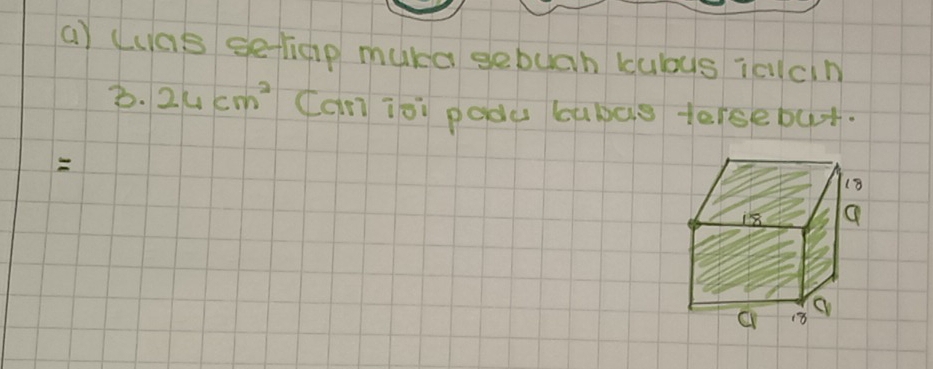 a) Luas setiap muka sebuah kubus ialah
3.24 cm² Cari isi padu kubus tersebut.
=
18
a
18
a
18
a